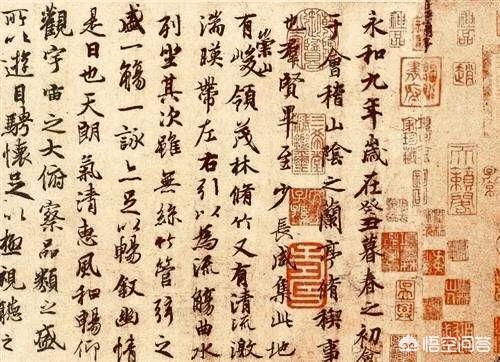 永和九年歲在癸丑暮春之初會
于會稽山陰之蘭亭脩禊事
也羣賢畢至少長咸集此地
崇山
有峻領茂林脩竹又有清流激
湍暎帶左右引以為流觴曲水
列坐其次雖無絲竹管弦之
盛一觴一詠亦足以暢敘幽情
是日也天朗氣清惠風和暢仰
觀宇宙之大俯察品類之盛
所以遊目騁懷足以極視聽之
悟空问答